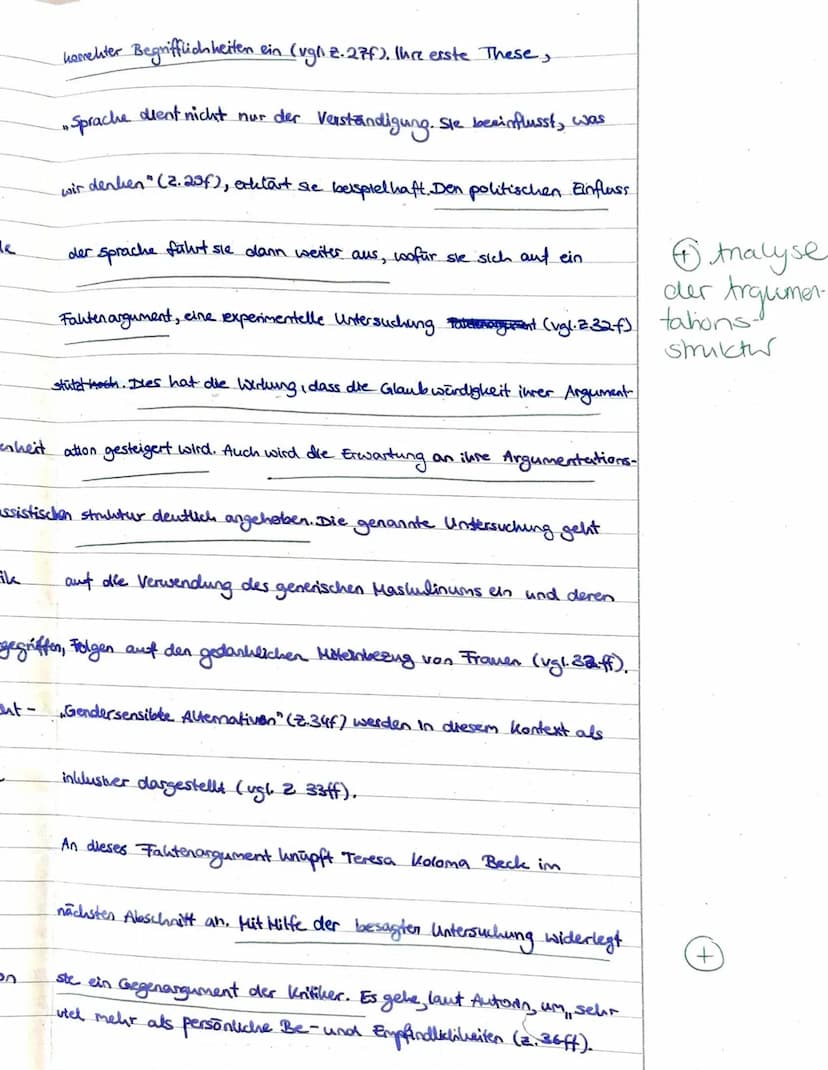 korrekter Begrifflichkeiten ein (vgl. Z. 27f). Ihre erste These,
„Sprache dient nicht nur der Verständigung. Sie beeinflusst, was
wir denken" (Z. 29f), erklärt sie beispielhaft. Den politischen Einfluss
der Sprache führt sie dann weiter aus, wofür sie sich auf ein
Faktenargument, eine experimentelle Untersuchung (vgl. Z 32f)
stützt. Dies hat die Wirkung, dass die Glaubwürdigkeit ihrer Argument
enheit ation gesteigert wird. Auch wird die Erwartung an ihre Argumentations-
ssistischen struktur deutlich angehoben. Die genannte Untersuchung geht
ik auf die Verwendung des generischen Maskulinums ein und deren
gegriffen, Folgen auf den gedanklichen Miteinbezug von Frauen (vgl. 32ff).
„Gendersensible Alternativen" (Z. 34f) werden in diesem Kontext als
inklusiver dargestellt (vgl. Z 33ff).
An dieses Faktenargument knüpft Teresa Koloma Beck im
nächsten Abschnitt an. Mit Hilfe der besagten Untersuchung widerlegt
on sie ein Gegenargument der Kritiker. Es gehe, laut Autorin, um „sehr
viel mehr als persönliche Be- und Empfindlichkeiten (Z. 36ff).
(+) Analyse
der Argumen-
tations-
struktur
(+)